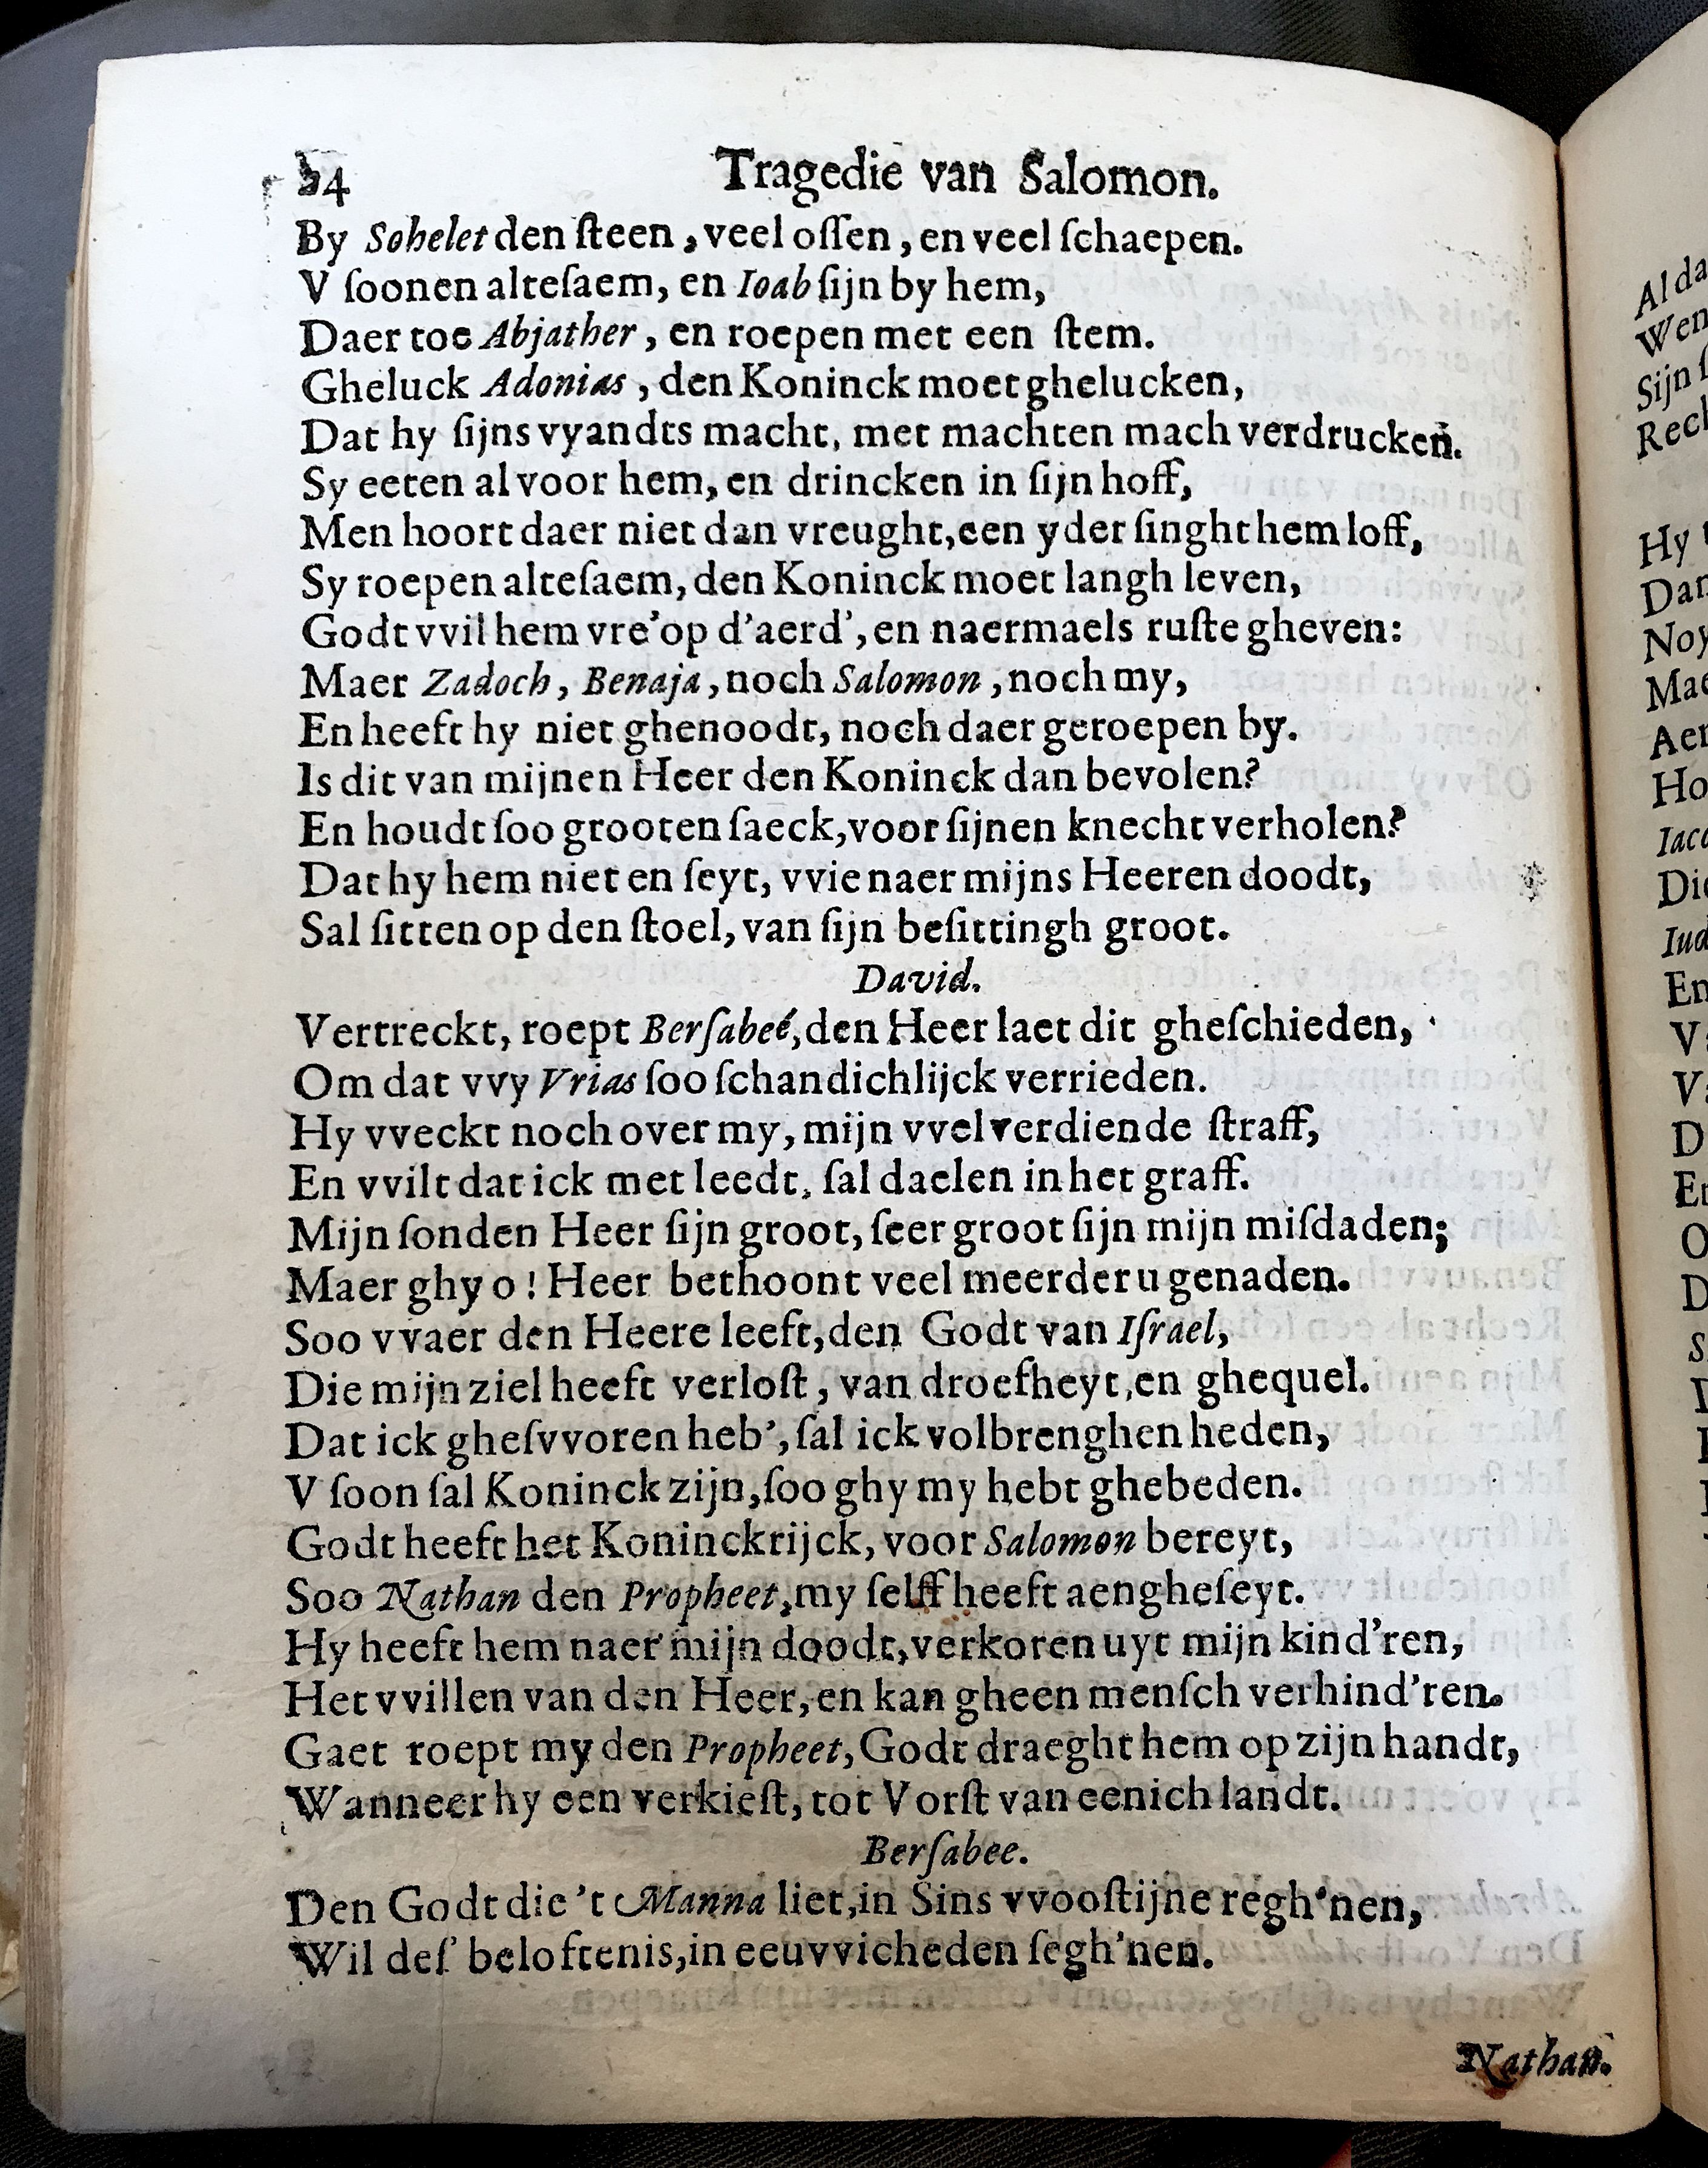 24 Tragedie van Salomon.
By Sohelet den ſteen, veel oſſen, en veel ſchaepen.
V ſoonen alteſaem, en Ioab ſijn by hem,
Daer toe Abjather, en roepen met een ſtem.
Gheluck Adonias, den Koninck moet ghelucken,
Dat hy ſijns vyandts macht, met machten mach verdrucken.
Sy eeten al voor hem, en drincken in ſijn hoff,
Men hoort daer niet dan vreught, een yder ſinght hem loff,
Sy roepen alteſaem, den Koninck moet langh leven,
Godt vvil hem vre'op d'aerd', en naermaels ruſte gheven:
Maer Zadoch, Benaja, noch Salomon, noch my,
En heeft hy niet ghenoodt, noch daer geroepen by.
Is dit van mijnen Heer den Koninck dan bevolen?
En houdt ſoo grooten ſaeck, voor ſijnen knecht verholen?
Dat hy hem niet en ſeyt, vvie naer mijns Heeren doodt,
Sal ſitten op den ſtoel, van ſijn beſittingh groot.
David.
Vertreckt, roept Berſabeé, den Heer laet dit gheſchieden,
Om dat vvy Vrias ſoo ſchandichlijck verrieden.
Hy vveckt noch over my, mijn vvel verdiende ſtraff,
En vvilt dat ick met leedt, ſal daelen in het graff.
Mijn ſonden Heer ſijn groot, ſeer groot ſijn mijn miſdaden;
Maer ghy o! Heer bethoont veel meerder u genaden.
Soo vvaer den Heere leeft, den Godt van Iſrael,
Die mijn ziel heeft verloſt, van droefheyt, en ghequel.
Dat ick gheſvvoren heb', ſal ick volbrenghen heden,
V ſoon ſal Koninck zijn, ſoo ghy my hebt ghebeden.
Godt heeft het Koninckrijck, voor Salomon bereyt,
Soo Nathan den Propheet, my ſelff heeft aengheſeyt.
Hy heeft hem naer mijn doodt, verkoren uyt mijn kind'ren,
Het vvillen van den Heer, en kan gheen menſch verhind'ren.
Gaet roept my den Propheet, Godt draeght hem op zijn handt,
Wanneer hy een verkieſt, tot Vorſt van eenich landt.
Berſabee.
Den Godt die 't Manna liet, in Sins vvooſtijne regh'nen,
Wil deſ' beloftenis, in eeuvvicheden ſegh'nen.
Nathan.